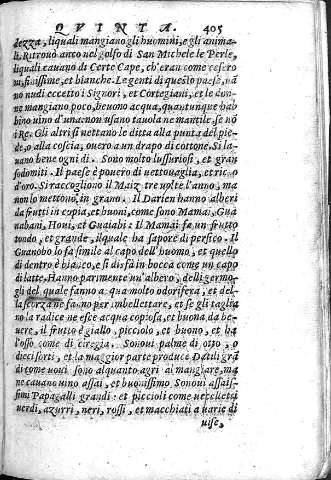 QVINTA. 405
dezza, liquali mangiano gli huomini, e gli anima-
li. Ritrouò anco nel golfo di San Michele le Perle,
liquali cauano di Certe Cape, ch'eran come cesero
et bianche. Le genti di questo paese, uã
no nudi eccetto i Signori, et Cortegiani, et le don-
ne mangiano poco, beuono acqua, quantunque hab
bino uino d'una non usano tauola ne mantile, se nõ
i Re. Gli altri si nettano le ditta alla punta del pie-
de, o alla coscia, ouero a un drapo di cottone. Si la-
uano bene ogni di. Sono molto lussuriosi, et gran
sodomiti. Il paese è pouero di uettouaglia, et ric
d'oro. Si raccogliono il Maiz tre uolte l'anno, ma
non lo mettono, in grano. Il Darien hanno alberi
da frutti in copia, et buoni, come sono Mamai, Gua
nabani, Houi, et Guaiabi: Il Mamai fa un frutto
tondo, et grande, ilquale ha sapore di persico. Il
Guanobo lo fa simile al capo dell'huomo, et quello
di dentro è bianco, e si disfà in bocca come un capo
di latte. Hanno parimente un'albero, delli germo-
gli del quale fanno aqua molto odorifera, et del-
la scorza ne fanno per imbellettare, et se gli taglia
no la radice ne esce acqua copiosa, et buona da be-
uere, il frutto è giallo, picciolo, et buono, et ha
l'osso come di ciregia. Sonoui palme di otto, o
dieci sorti, et la maggior parte produce Dattili grã
di come uoui sono alquanto agri al mangiare, ma
ne cauano uino assai, et buonissimo. Sonoui assais-
simi Papagalli grandi: et piccioli come uccelletti
uerdi, azurri, neri, rossi, et macchiati a uarie di
uise,